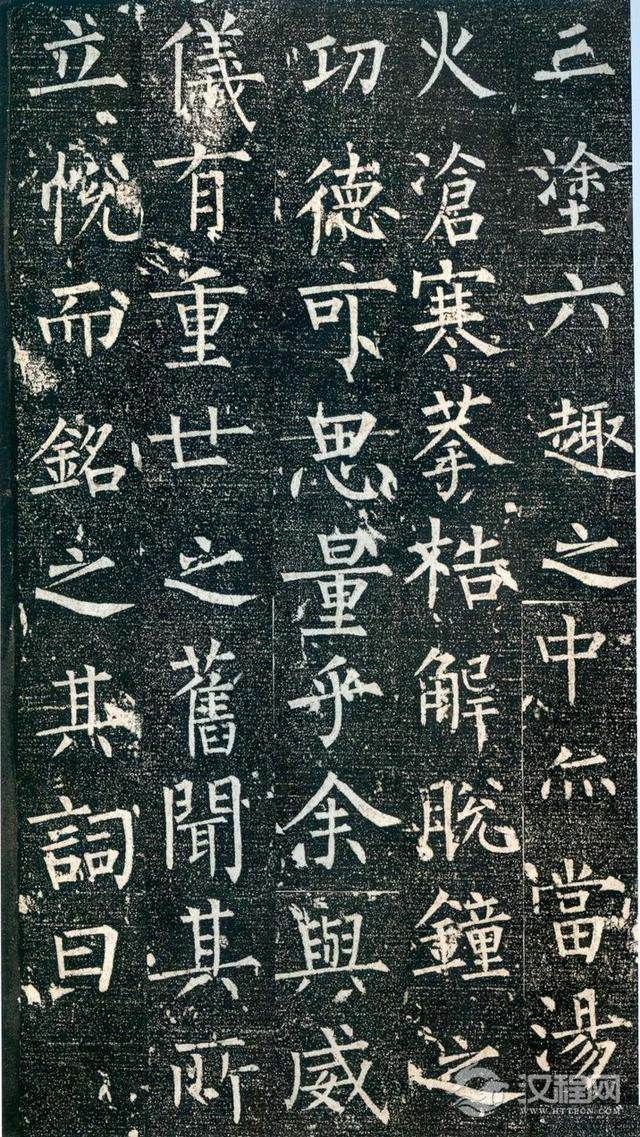 三塗六趣之中亦當湯
火滄寒拲梏解脫鐘之
功德可思量乎余與威
儀有重世之舊聞其所
立悅而銘之其詞曰
汉程网
WWW.HTTPCN.COM